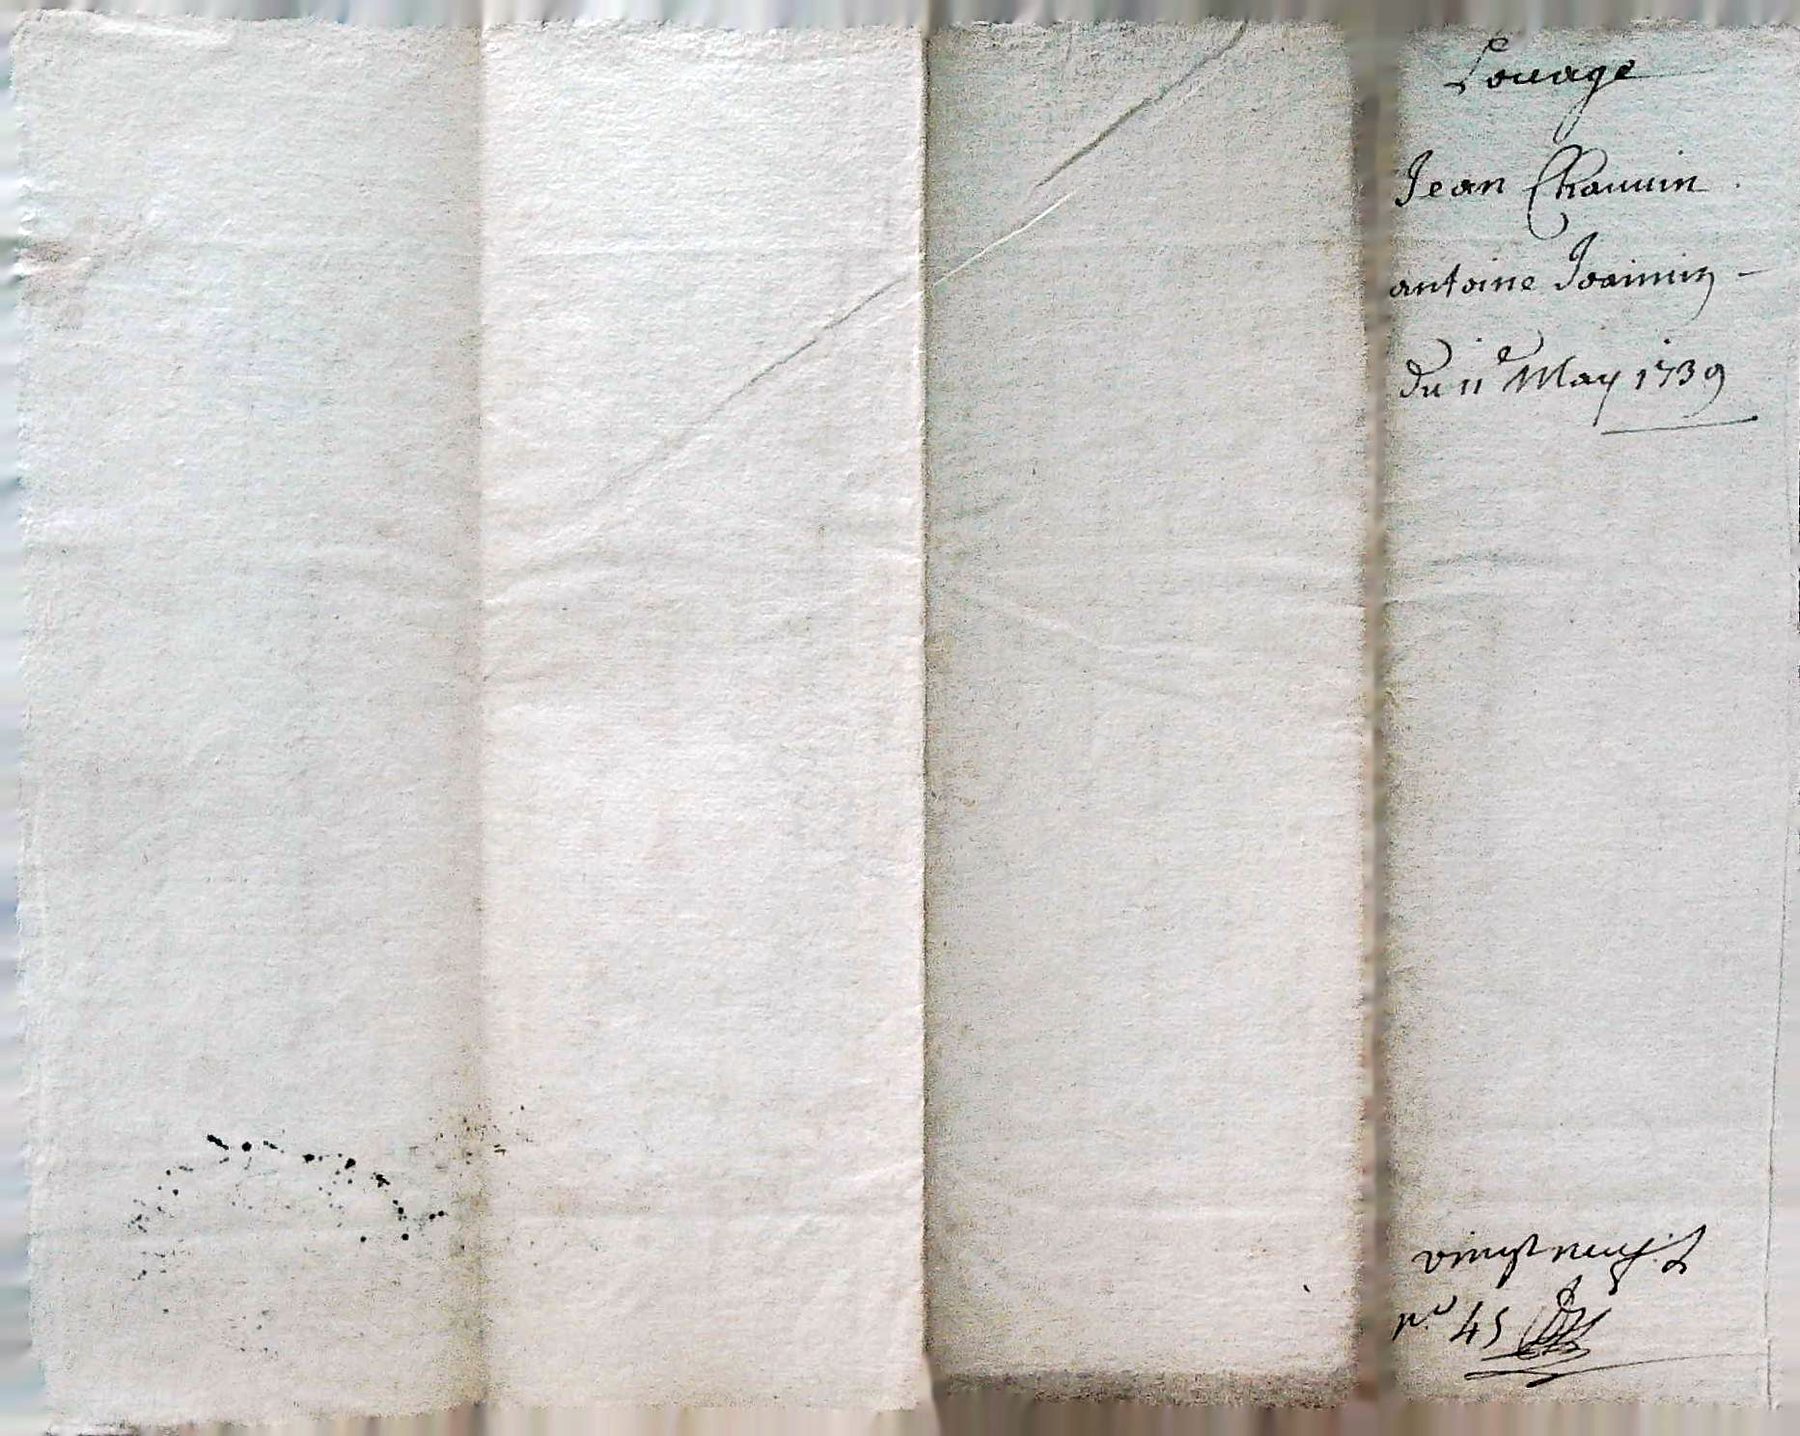 Louage
Jean Chauuin
antoine Joannin
du 11e May 1739
vingt neuf. L
no 45